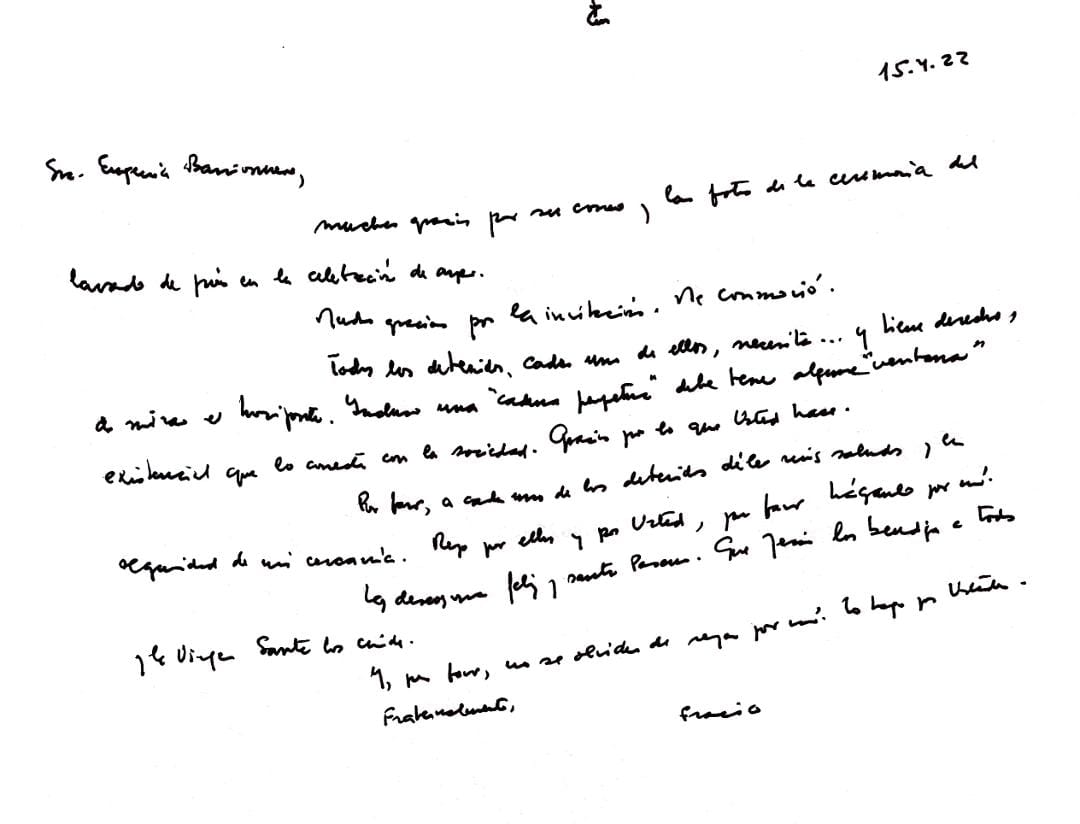 15.4.22
Sra. Eugenia Barrionuevo,
muchas gracias por su correo, y las fotos de la ceremonia del
lavado de pies en la celebración de ayer.
Muchas gracias por la invitación. Me conmovió.
Todos los detenidos, cada uno de ellos, necesita... y tiene derecho,
a mirar el horizonte. Incluso una "cadena perpetua" debe tener alguna "ventana"
existencial que lo conecte con la sociedad. Gracias por lo que Usted hace.
Por favor, a cada uno de los detenidos déles mis saludos y la
seguridad de mi cercanía. Rezo por ellos y por Usted, por favor háganlo por mí.
Les deseo una feliz y santa Pascua. Que Jesús los bendiga a todos
y la Virgen Santa los cuide.
Y, por favor, no se olviden de rezar por mí. Lo hago por Ustedes.
Fraternalmente,
Francisco